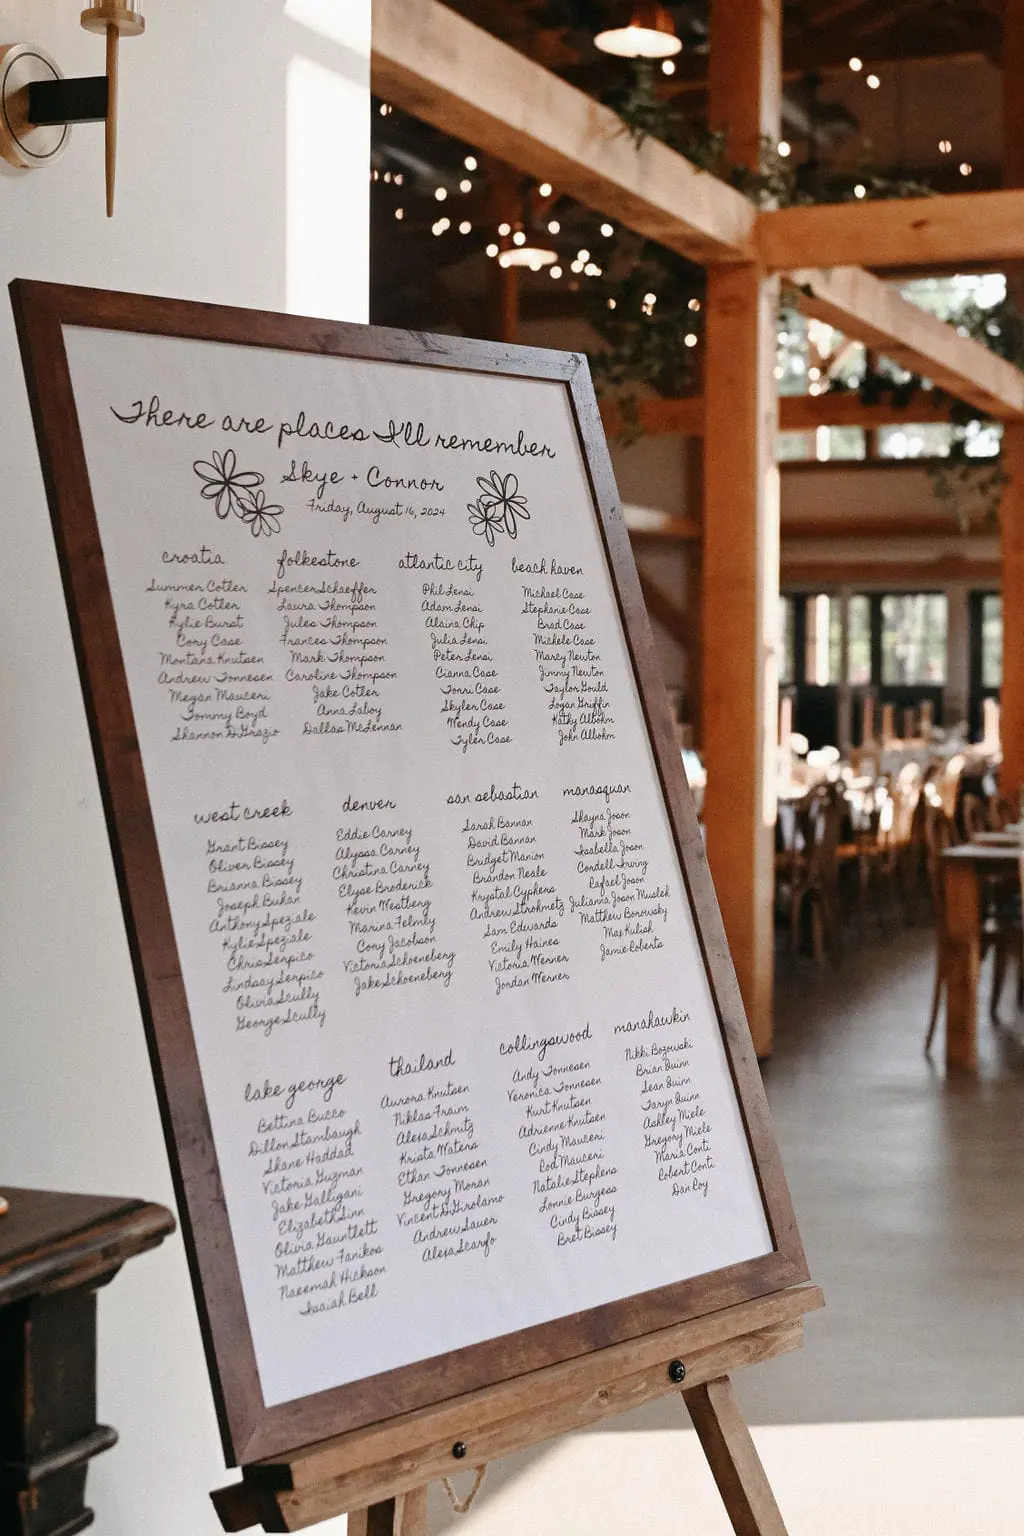 There are places I'll remember
Skye + Connor
Friday, August 16, 2024
croatia
Summer Cotler
Kyra Cotler
Kylie Burst
Cory Case
Montana Knutsen
Andrew Tonnesen
Megan Mauceri
Tommy Boyd
Shannon DiGrazio
folkestone
Spencer Schaeffer
Laura Thompson
Jules Thompson
Frances Thompson
Mark Thompson
Caroline Thompson
Jake Cotler
Anna Laboy
Dallas McLennan
atlantic city
Phil Lensi
Adam Lensi
Alaina Chip
Julia Lensi
Peter Lensi
Cianna Case
Torri Case
Skyler Case
Wendy Case
Tyler Case
beach haven
Michael Case
Stephanie Case
Brad Case
Michele Case
Marcy Newton
Jimmy Newton
Taylor Gould
Logan Griffin
Kathy Albohm
John Albohm
west creek
Grant Bissey
Oliver Bissey
Brianna Bissey
Joseph Buhan
Anthony Speziale
Kylie Speziale
Chris Serpico
Lindsay Serpico
Olivia Scully
George Scully
denver
Eddie Carney
Alyssa Carney
Christina Carney
Elyse Broderick
Kevin Westberg
Marina Felmly
Cory Jacobson
Victoria Schoeneberg
Jake Schoeneberg
san sebastian
Sarah Bannan
David Bannan
Bridget Manion
Brandon Neale
Krystal Cyphers
Andrew Strohmetz
Sam Edwards
Emily Haines
Victoria Werner
Jordan Werner
manasquan
Shayna Joson
Mark Joson
Isabella Joson
Cordell Irving
Rafael Joson
Julianna Joson Muslek
Matthew Borowsky
Max Kulish
Jamie Roberts
lake george
Bettina Bucco
Dillon Stambaugh
Shane Haddad
Victoria Guzman
Jake Galligani
Elizabeth Sinn
Olivia Gauntlett
Matthew Fanikos
Naeemah Hickson
Isaiah Bell
thailand
Aurora Knutsen
Niklas Fraim
Alexa Schmitz
Krista Waters
Ethan Tonnesen
Gregory Moran
Vincent DiGirolamo
Andrew Sauer
Alexa Scarfo
collingswood
Andy Tonnesen
Veronica Tonnesen
Kurt Knutsen
Adrienne Knutsen
Cindy Mauceri
Rod Mauceri
Natalie Stephens
Lonnie Burgess
Cindy Bissey
Bret Bissey
manahawkin
Nikki Bozowski
Brian Quinn
Sean Quinn
Taryn Quinn
Ashley Miele
Gregory Miele
Maria Conti
Robert Conti
Dan Roy